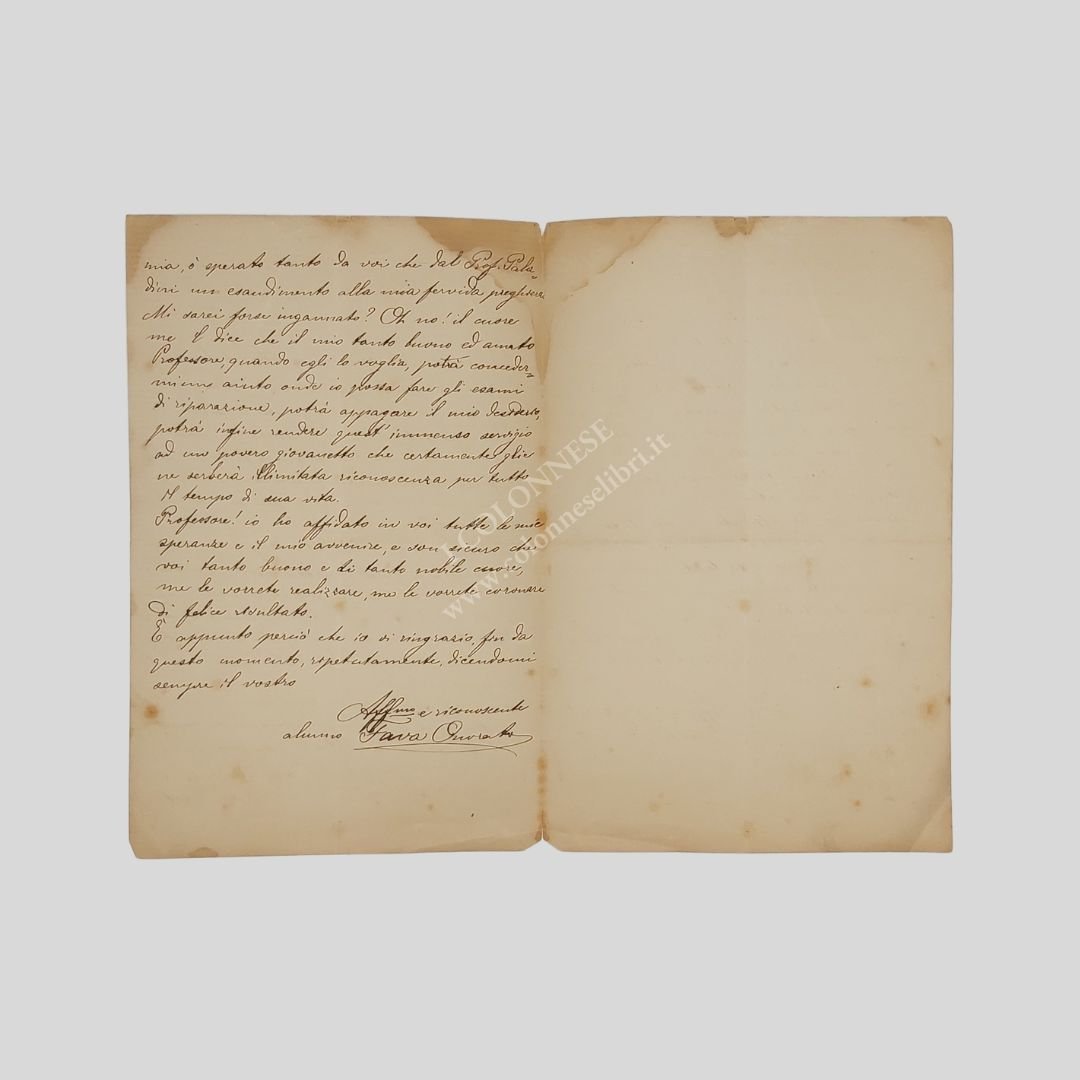 mia, ò sperato tanto da voi che dal Prof. Pala=
dini un esaudimento alla mia fervida preghiera
Mi sarei forse ingannato? Oh no! il cuore
me l dice che il mio tanto buono ed amato
Professore, quando egli lo voglia, potrà conceder=
mi un aiuto onde io possa fare gli esami
di riparazione, potrà appagare il mio desiderio,
potrà infine rendere quest'immenso servigio
ad un povero giovanetto che certamente glie
ne serberà illimitata riconoscenza per tutto
il tempo di sua vita.
Professore! io ho affidato in voi tutte le mie
speranze e il mio avvenire, e son sicuro che
voi tanto buono e di tanto nobile cuore,
me le vorrete realizzare, me le vorrete coronare
di felice resultato.
È appunto perciò che io vi ringrazio, fin da
questo momento, ripetutamente, dicendomi
sempre il vostro
Affmo e riconoscente
alunno Fava Onorato
COLONNESE
www.colonneselibri.it